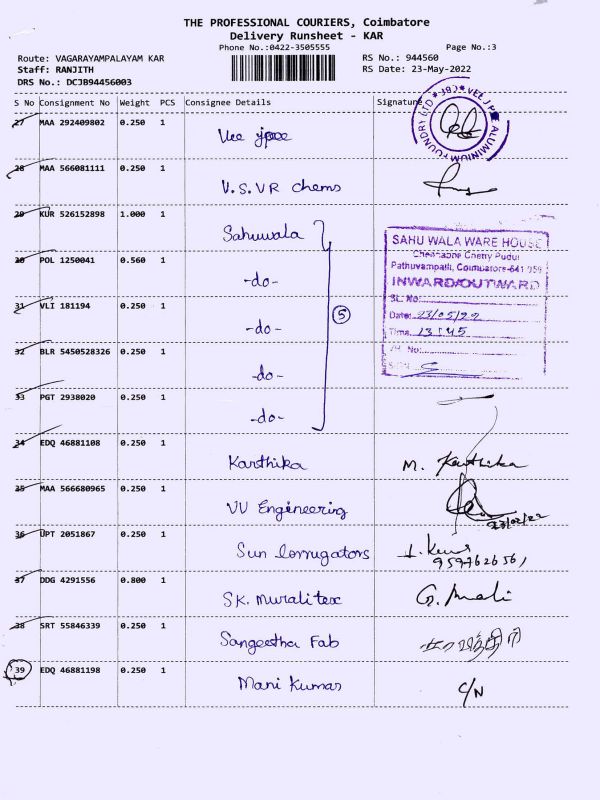 THE PROFESSIONAL COURIERS, Coimbatore
Delivery Runsheet - KAR
Phone No.:0422-3505555 Page No.:3
Route: VAGARAYAMPALAYAM KAR RS No.: 944560
Staff: RANJITH RS Date: 23-May-2022
DRS No.: DCJB94456003
S No Consignment No Weight PCS Consignee Details Signature
27 MAA 292409802 0.250 1 Vee jpee
VEE J PEE ALUMINIUM FOUNDRY LTD
28 MAA 566081111 0.250 1 V.S.VR chems
29 KUR 526152898 1.000 1 Sahuwala
30 POL 1250041 0.560 1 -do-
31 VLI 181194 0.250 1 -do-
32 BLR 5450528326 0.250 1 -do-
33 PGT 2938020 0.250 1 -do-
5
SAHU WALA WARE HOUSE
Pathuvampalli, Coimbatore-641 059
INWARD/OUTWARD
SL. No:
Date: 23/05/22
Time. 13:45
No:
SIGN
34 EDQ 46881108 0.250 1 Karthika M. Karthika
35 MAA 566680965 0.250 1 VV Engineering
36 UPT 2051867 0.250 1 Sun Corrugators
37 DDG 4291556 0.800 1 SK. Muralitex G. Mali
38 SRT 55846339 0.250 1 Sangeetha Fab
39 EDQ 46881198 0.250 1 Mani Kumar C/N